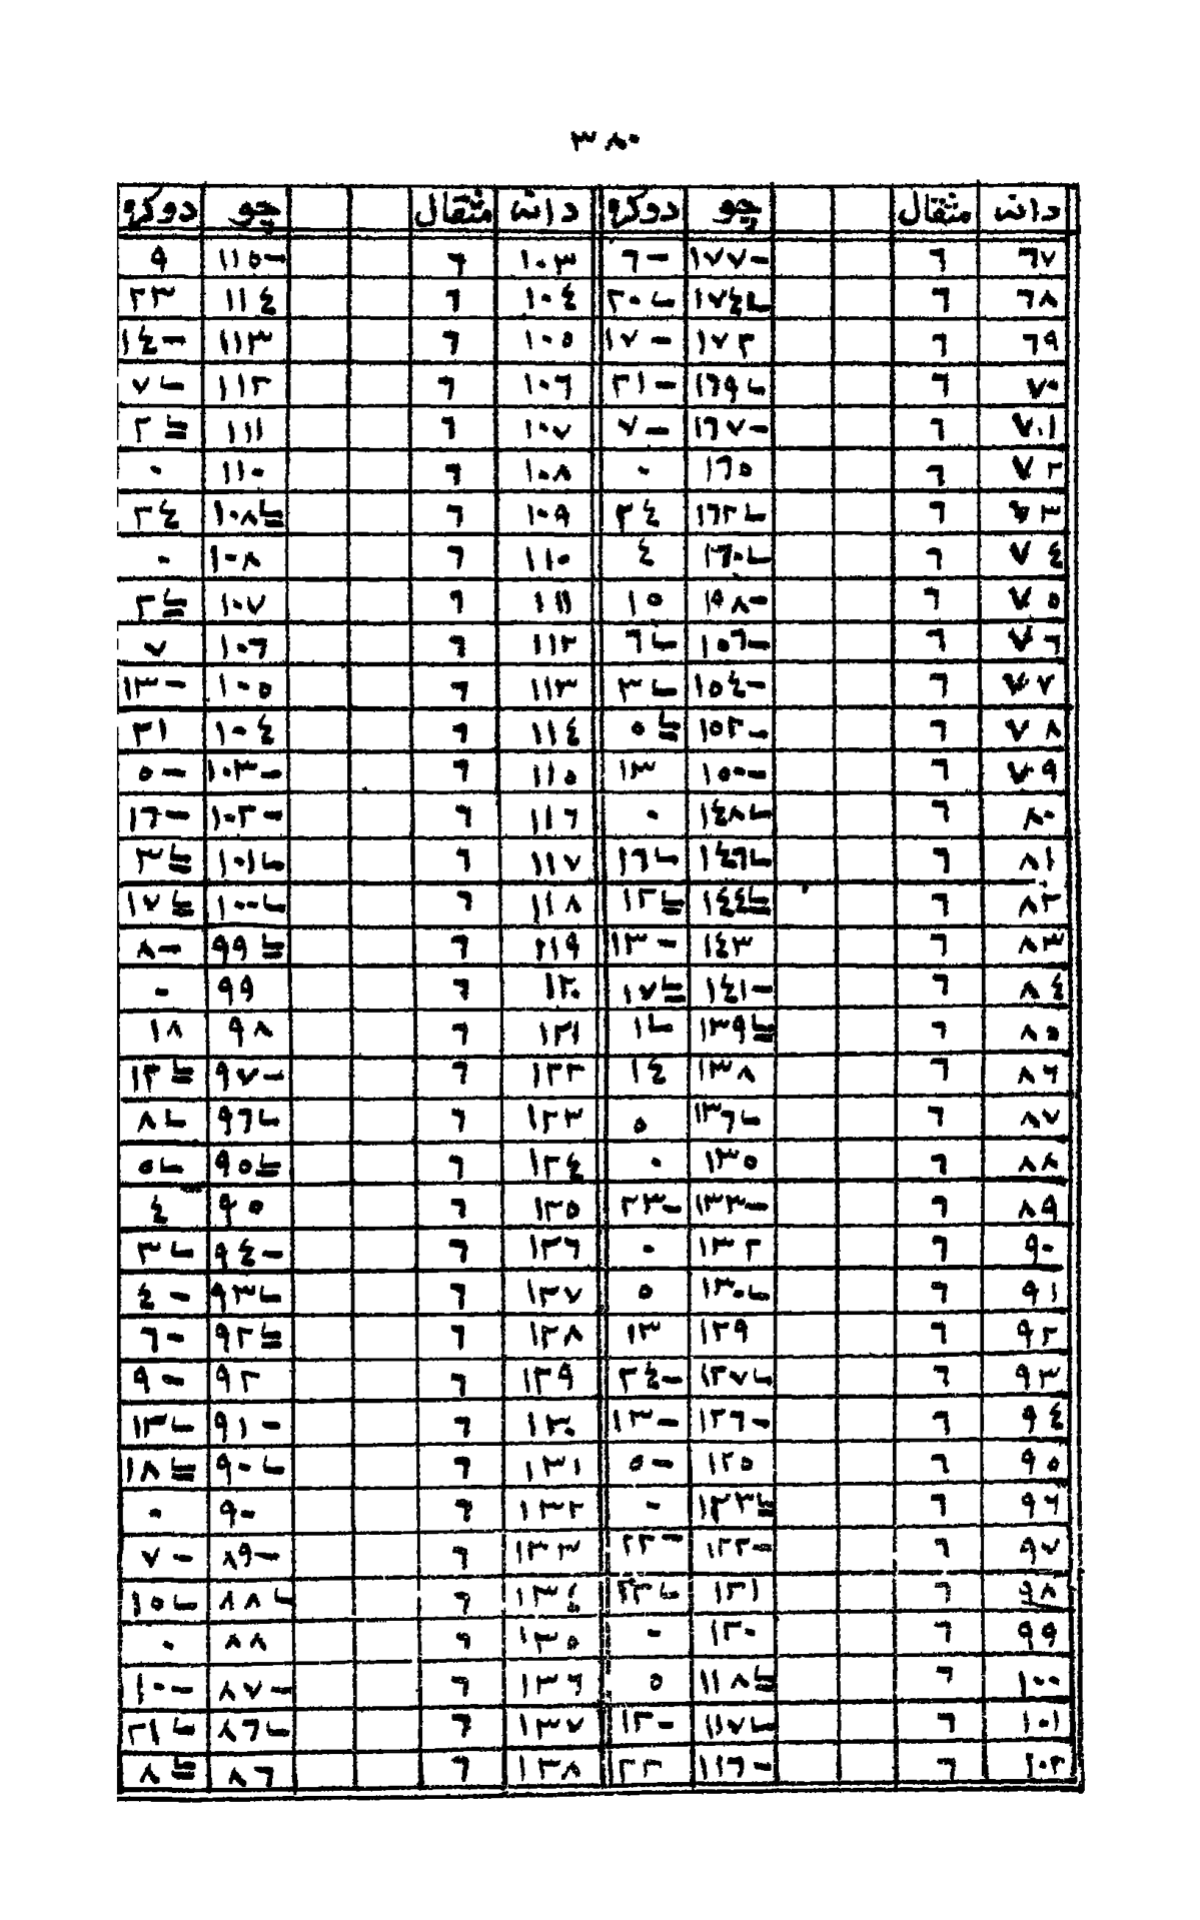 ٣٨٠
دانه مثقال چو دوكره دانه مثقال چو دوكره
٦٧ ٦ ١٧٧- ٦- ١٠٣ ٦ ١١٥- ٩
٦٨ ٦ ١٧٤ ٢٠ ١٠٤ ٦ ١١٤ ٢٣
٦٩ ٦ ١٧٢ ١٧- ١٠٥ ٦ ١١٣ ١٤-
٧٠ ٦ ١٦٩ ٢١- ١٠٦ ٦ ١١٢ ٧
٧١ ٦ ١٦٧- ٧- ١٠٧ ٦ ١١١ ٢
٧٢ ٦ ١٦٥ ٠ ١٠٨ ٦ ١١٠ ٠
٧٣ ٦ ١٦٢ ٢٤ ١٠٩ ٦ ١٠٨ ٢٤
٧٤ ٦ ١٦٠ ٤ ١١٠ ٦ ١٠٨ ٠
٧٥ ٦ ١٥٨- ١٥ ١١١ ٦ ١٠٧ ٢
٧٦ ٦ ١٥٦- ٦ ١١٢ ٦ ١٠٦ ٧
٧٧ ٦ ١٥٤- ٣ ١١٣ ٦ ١٠٥ ١٣-
٧٨ ٦ ١٥٢- ٥ ١١٤ ٦ ١٠٤ ٢١
٧٩ ٦ ١٥٠- ١٣ ١١٥ ٦ ١٠٣- ٥-
٨٠ ٦ ١٤٨ ٠ ١١٦ ٦ ١٠٢- ١٦-
٨١ ٦ ١٤٦ ١٦ ١١٧ ٦ ١٠١ ٣
٨٢ ٦ ١٤٤ ١٢ ١١٨ ٦ ١٠٠ ١٧
٨٣ ٦ ١٤٣ ١٣- ١١٩ ٦ ٩٩ ٨-
٨٤ ٦ ١٤١- ١٧ ١٢٠ ٦ ٩٩ ٠
٨٥ ٦ ١٣٩ ١ ١٢١ ٦ ٩٨ ١٨
٨٦ ٦ ١٣٨ ١٤ ١٢٢ ٦ ٩٧- ١٢
٨٧ ٦ ١٣٦ ٥ ١٢٣ ٦ ٩٦ ٨
٨٨ ٦ ١٣٥ ٠ ١٢٤ ٦ ٩٥ ٥
٨٩ ٦ ١٣٣- ٢٣- ١٢٥ ٦ ٩٥ ٤
٩٠ ٦ ١٣٢ ٠ ١٢٦ ٦ ٩٤- ٣
٩١ ٦ ١٣٠ ٥ ١٢٧ ٦ ٩٣ ٤-
٩٢ ٦ ١٢٩ ١٣ ١٢٨ ٦ ٩٢ ٦-
٩٣ ٦ ١٢٧ ٢٤- ١٢٩ ٦ ٩٢ ٩-
٩٤ ٦ ١٢٦- ١٣- ١٣٠ ٦ ٩١- ١٣
٩٥ ٦ ١٢٥ ٥- ١٣١ ٦ ٩٠ ١٨
٩٦ ٦ ١٢٣ ٠ ١٣٢ ٦ ٩٠ ٠
٩٧ ٦ ١٢٢- ٢٢- ١٣٣ ٦ ٨٩- ٧-
٩٨ ٦ ١٢١ ٢٢ ١٣٤ ٦ ٨٨ ١٥
٩٩ ٦ ١٢٠ ٠ ١٣٥ ٦ ٨٨ ٠
١٠٠ ٦ ١١٨ ٥ ١٣٦ ٦ ٨٧- ١٠-
١٠١ ٦ ١١٧ ١٢- ١٣٧ ٦ ٨٦ ٢١
١٠٢ ٦ ١١٦- ٢٢ ١٣٨ ٦ ٨٦ ٨